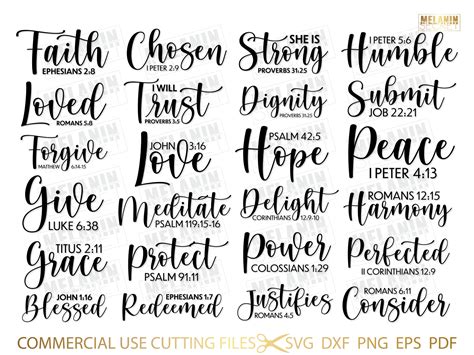 MELANIN
Faith
EPHESIANS 2:8
Chosen
I PETER 2:9
SHE IS
Strong
PROVERBS 31:25
I PETER 5:6
Humble
Loved
ROMANS 5:8
I WILL
Trust
PROVERBS 3:5
Dignity
PROVERBS 31:25
Submit
JOB 22:21
Forgive
MATTHEW 6:14-15
JOHN 3:16
Love
PSALM 42:5
Hope
Peace
I PETER 4:13
Give
LUKE 6:38
Meditate
PSALM 119:15-16
Delight
CORINTHIANS 12:9-10
ROMANS 12:15
Harmony
TITUS 2:11
Grace
Protect
PSALM 91:11
Power
COLOSSIANS 1:29
Perfected
II CORINTHIANS 12:9
JOHN 1:16
Blessed
EPHESIANS 1:7
Redeemed
Justifies
ROMANS 4:5
ROMANS 6:11
Consider
COMMERCIAL USE CUTTING FILES SVG DXF PNG EPS PDF